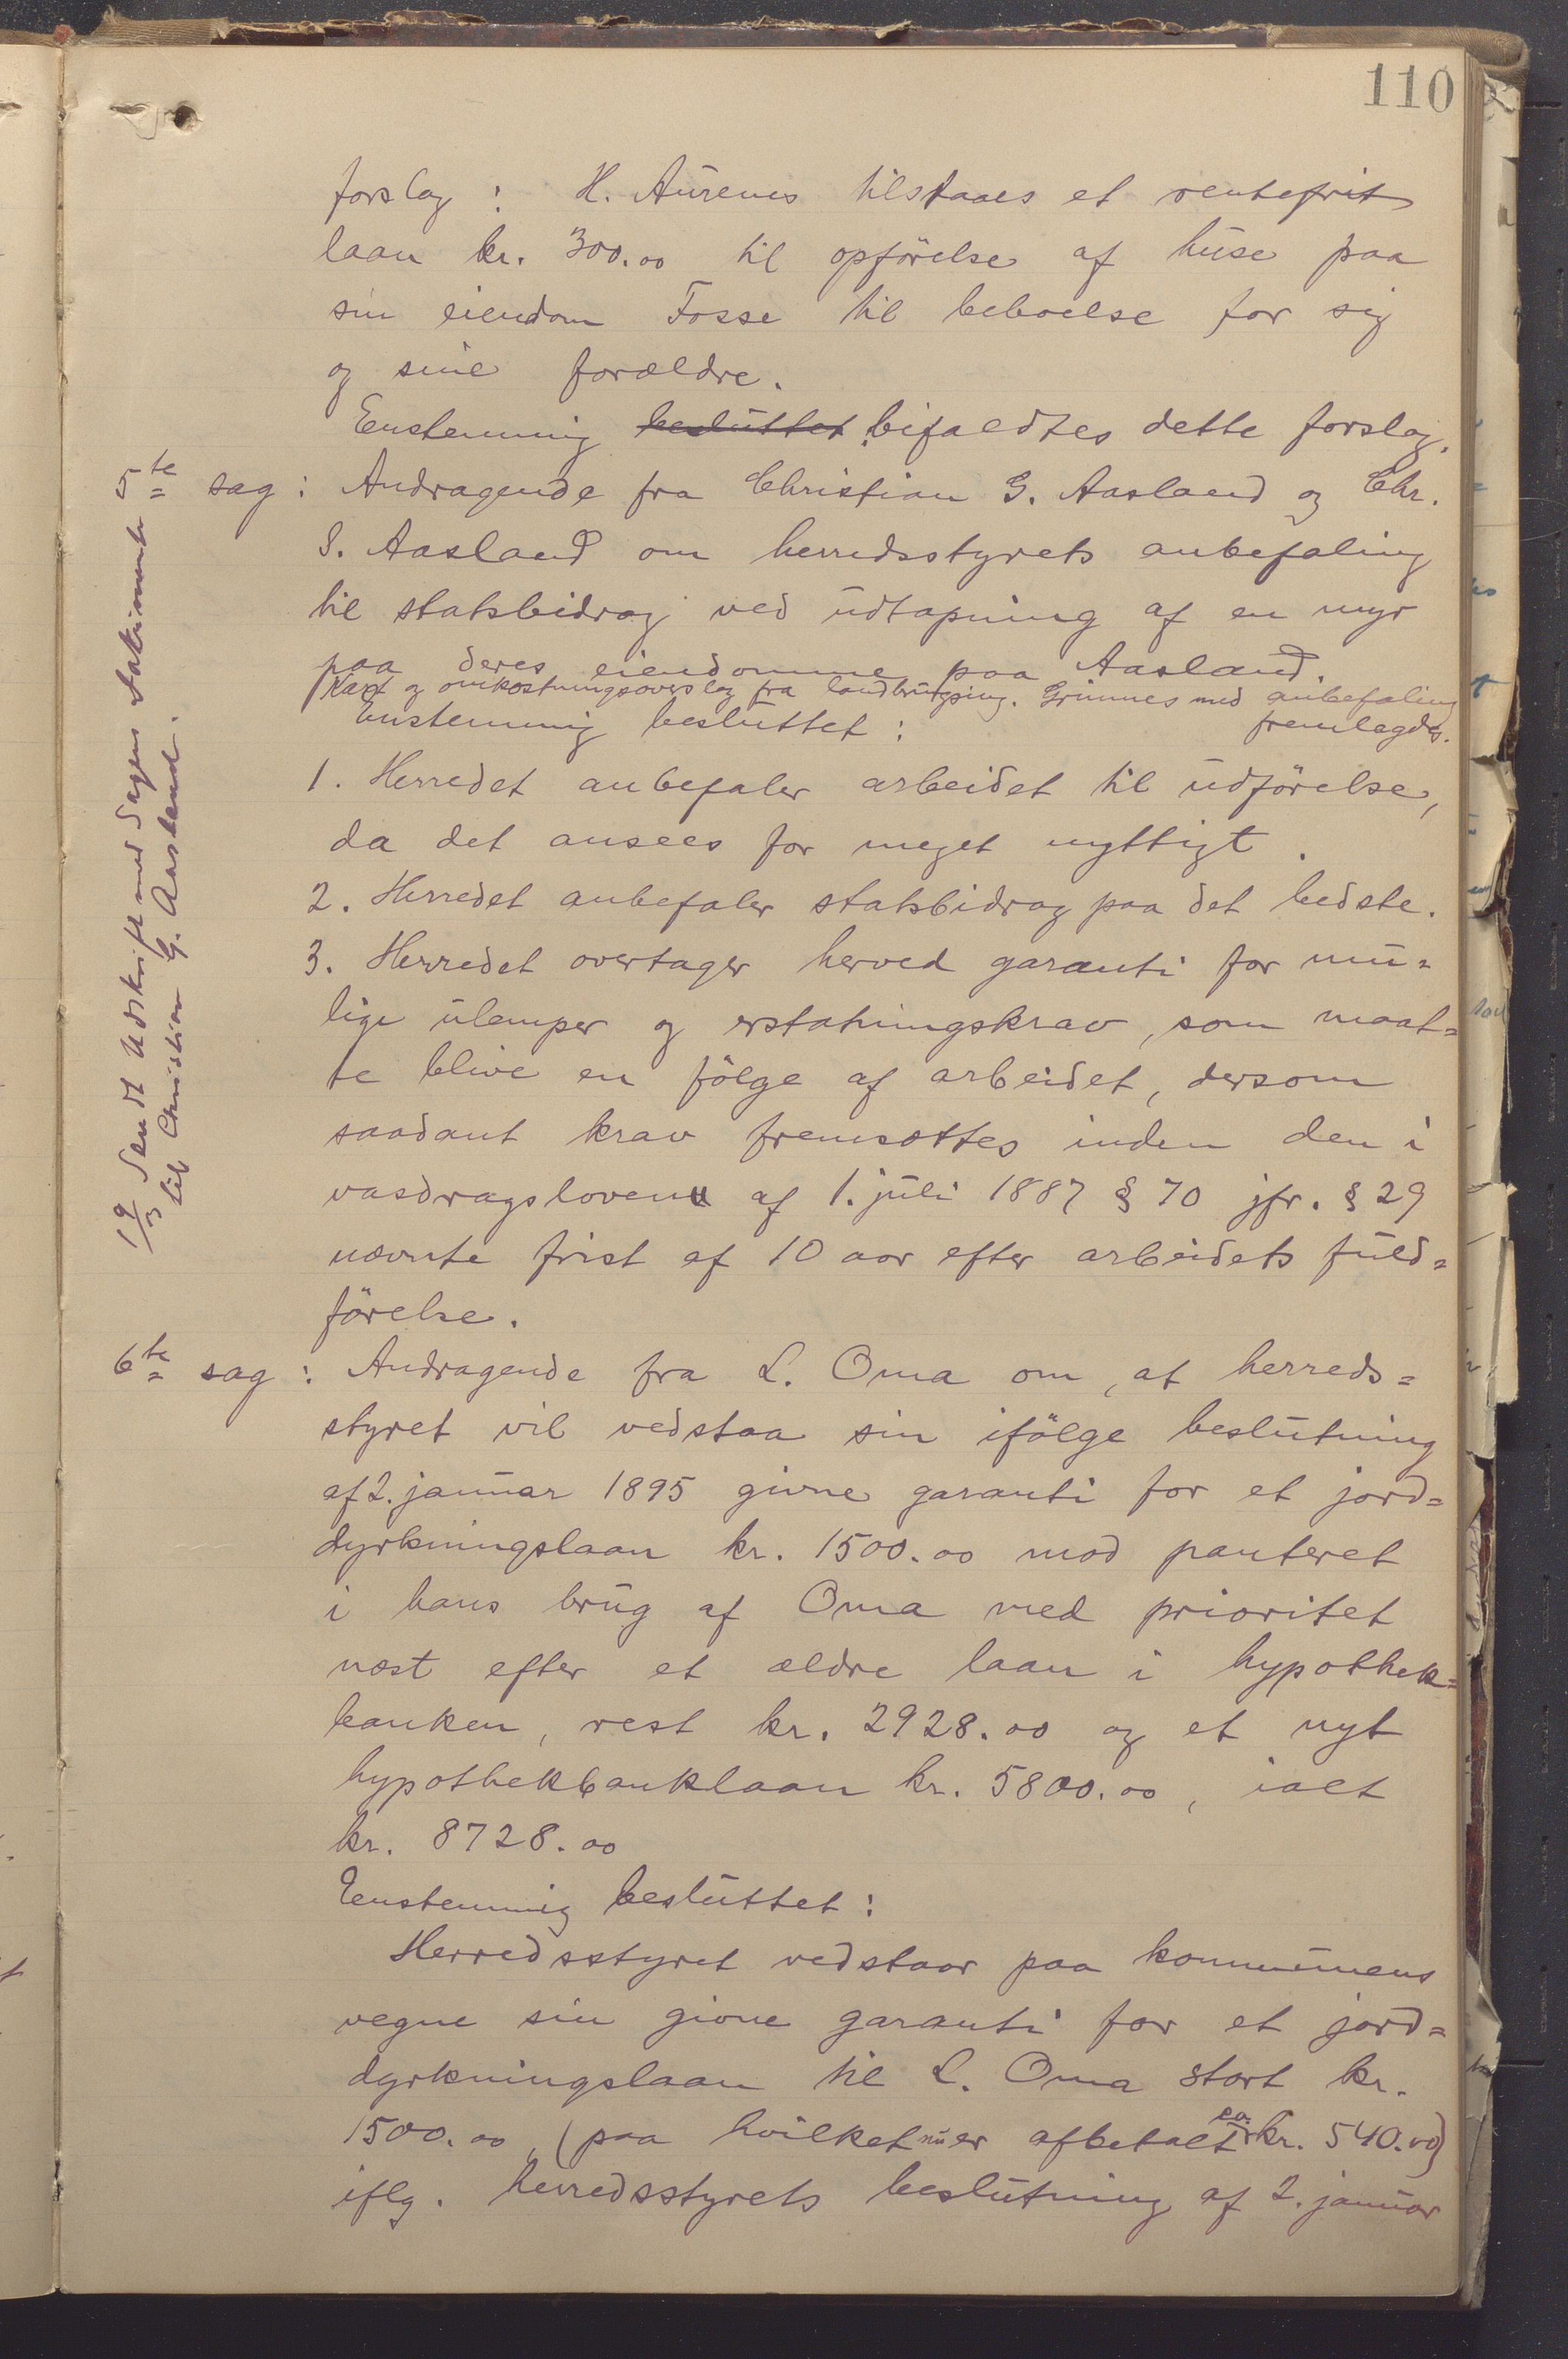 110
forslag : H. Aurenes tilstaaes et rentefrit
laan kr. 300.00 til opförelse af huse paa
sin eiendom Fosse til beboelse for sig
og sine forældre.
Enstemmig besluttet bifaldtes dette forslag.
5te sag : Andragende fra Christian G. Aasland og Chr.
S. Aasland om herredsstyrets anbefaling
til statsbidrag ved udtapning af en myr
paa deres eiendomme paa Aasland.
Kart og omkostningsoverslag fra landbrugsing. Grimnes med anbefaling
fremlagdes.
Enstemmig besluttet :
1. Herredet anbefaler arbeidet til udförelse,
da det ansees for meget nyttigt.
2. Herredet anbefaler statsbidrag paa det bedste.
3. Herredet overtager herved garanti for mu=
lige ulemper og erstatningskrav, som maat=
te blive en fölge af arbeidet, dersom
saadant krav fremsættes inden den i
vasdragsloven af 1. juli 1887 § 70 jfr. § 29
nævnte frist af 10 aar efter arbeidets fuld=
förelse.
19/3 Sendt Udskrift med Sagens Dokumenter
til Christian G. Aasland.
6te sag : Andragende fra L. Oma om, at herreds=
styret vil vedstaa sin ifölge beslutning
af 2. januar 1895 givne garanti for et jord=
dyrkningslaan kr. 1500.00 mod panteret
i hans brug af Oma med prioritet
næst efter et ældre laan i hypothek=
banken, rest kr. 2928.00 og et nyt
hypothekbanklaan kr. 5800.00, ialt
kr. 8728.00
Enstemmig besluttet :
Herredsstyret vedstaar paa kommunens
vegne sin givne garanti for et jord=
dyrkningslaan til L. Oma stort kr.
1500.00, (paa hvilket nu er afbetalt ca. kr. 540.00)
iflg. herredsstyrets beslutning af 2. januar